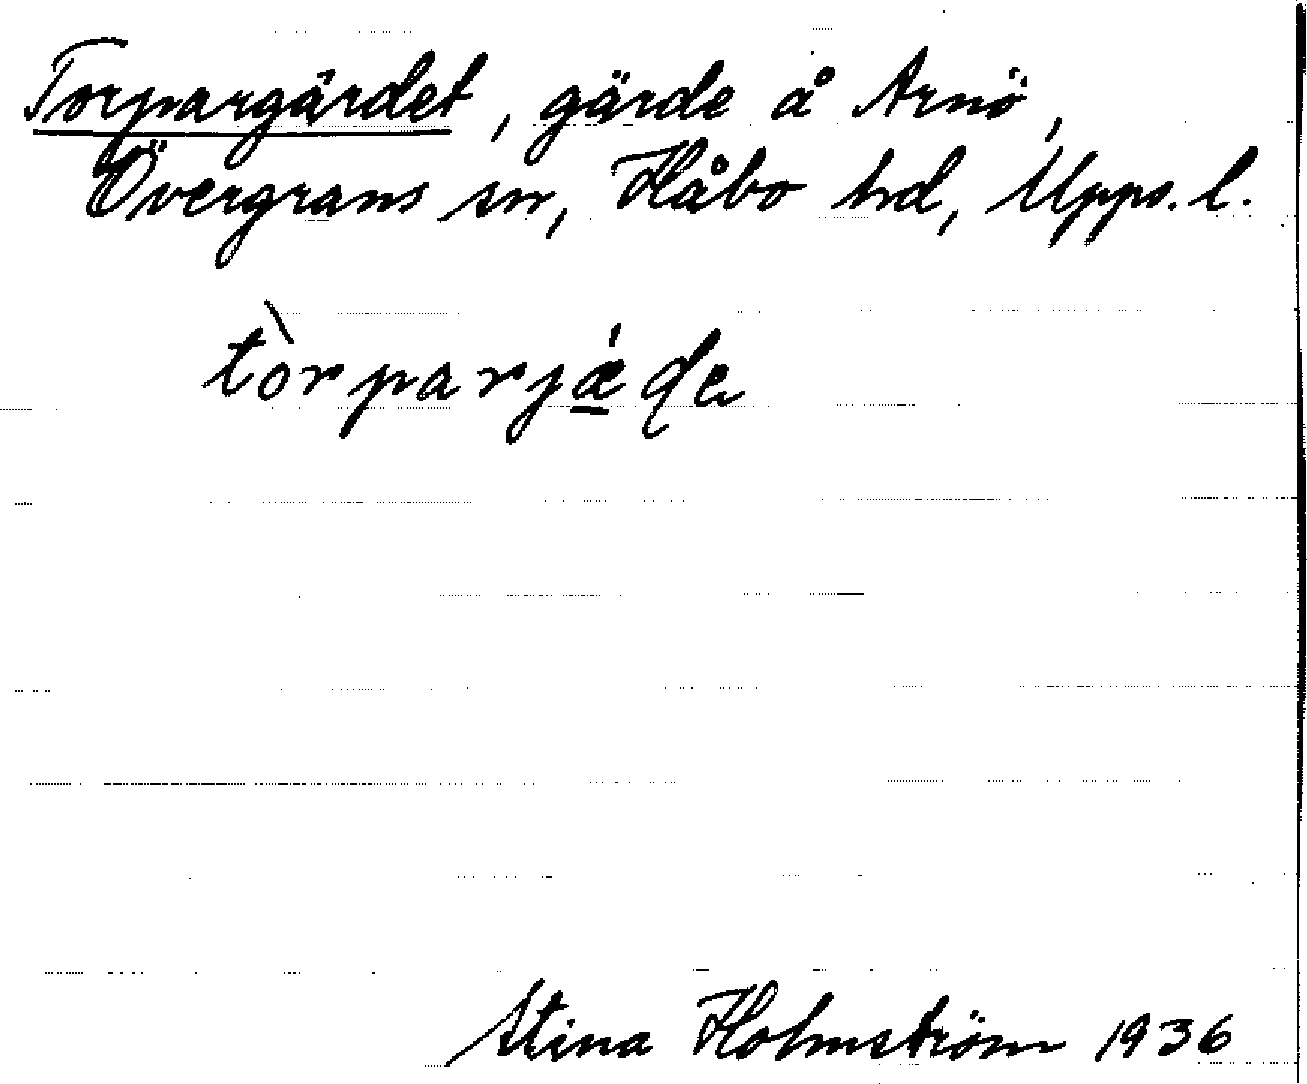 Torpargärdet, gärde å Arnö,
Övergrans sn, Håbo hd, Upps. l.
tòrparjǽ̠ɖe
Stina Holmström 1936